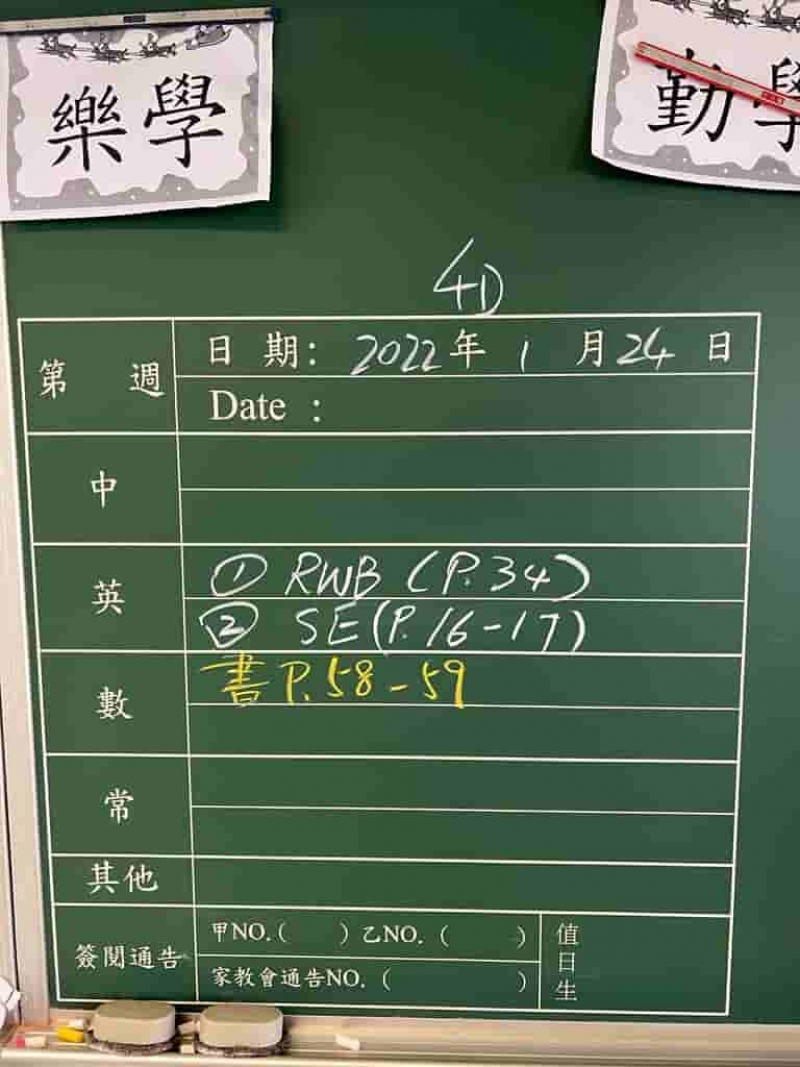 樂學
勤學
4D
第 週
日 期： 2022 年 1 月 24 日
Date :
中
英
① RWB (P.34)
② SE (P.16-17)
數
書 P.58-59
常
其他
簽閱通告
甲NO.( ) 乙NO. ( )
家教會通告NO. ( )
值日生